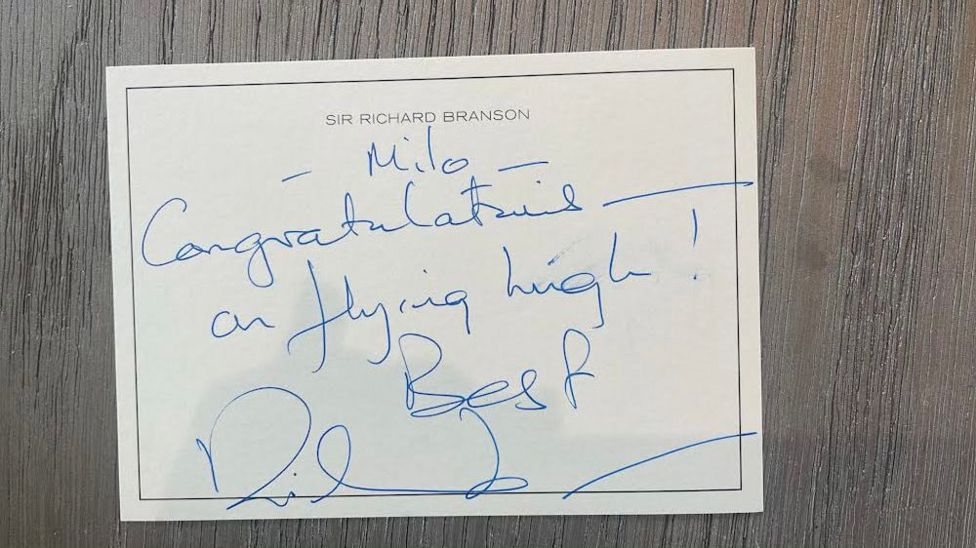 SIR RICHARD BRANSON
- Milo -
Congratulations -
on flying high!
Best
Richard